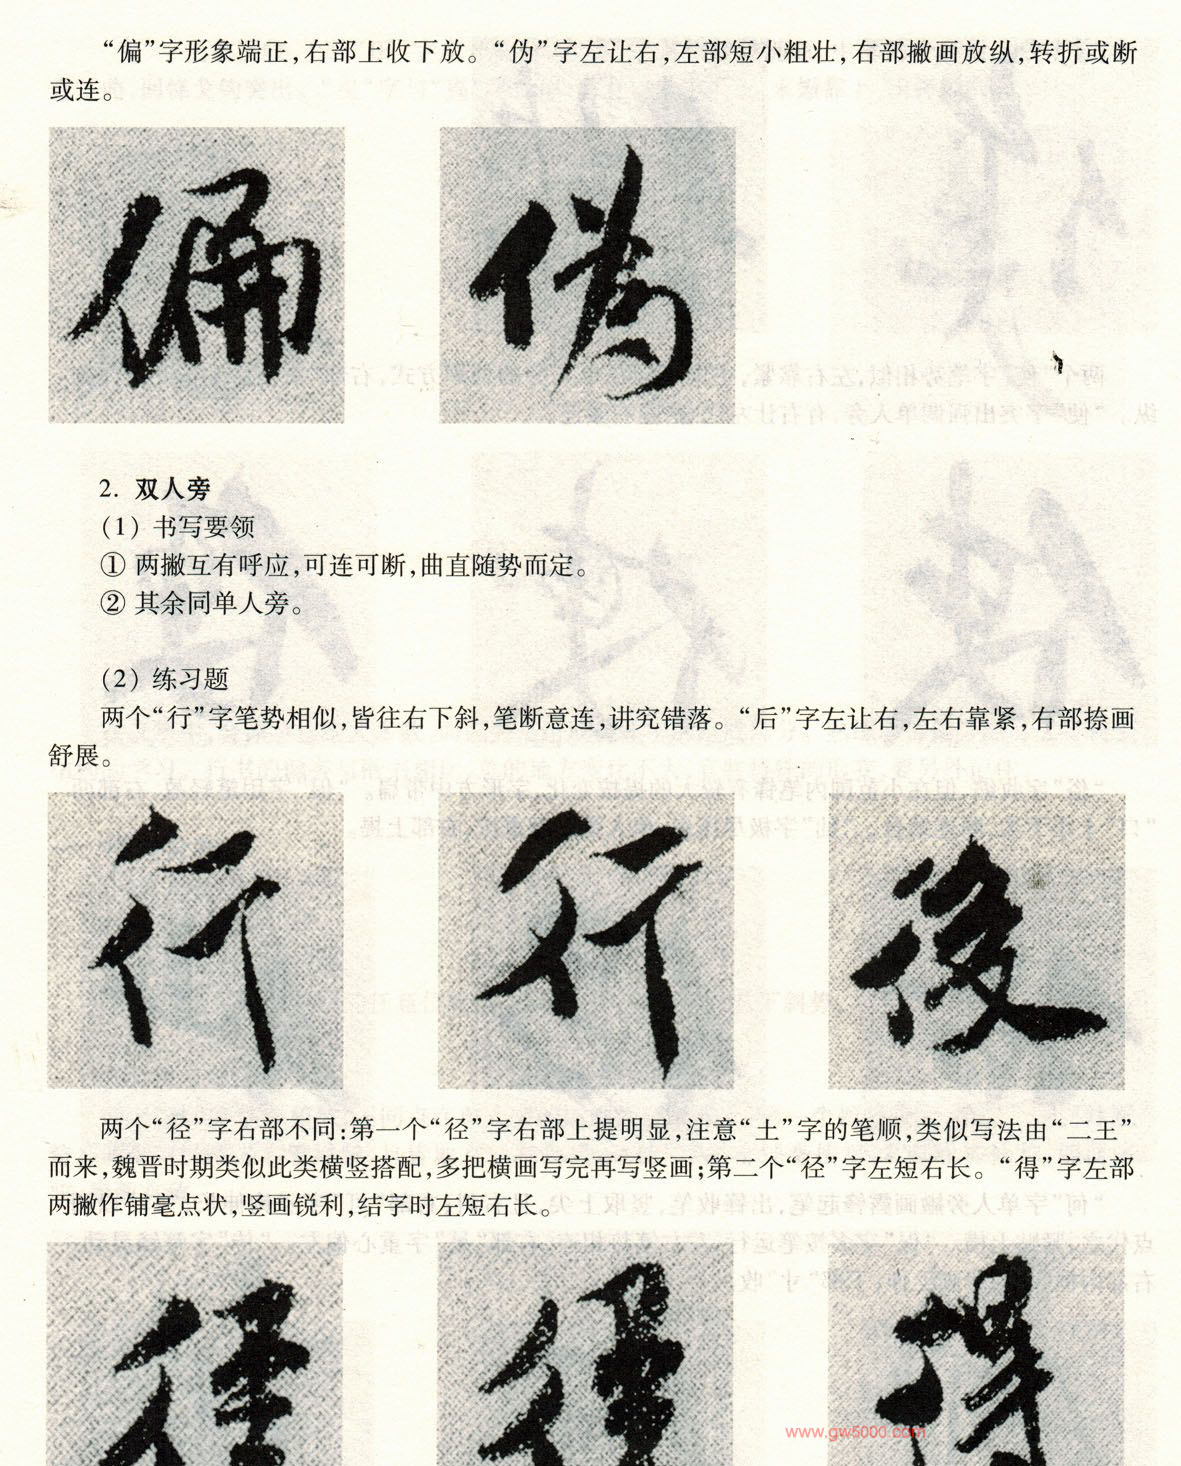 “偏”字形象端正，右部上收下放。“伪”字左让右，左部短小粗壮，右部撇画放纵，转折或断
或连。
偏 偽
2. 双人旁
(1) 书写要领
① 两撇互有呼应，可连可断，曲直随势而定。
② 其余同单人旁。
(2) 练习题
两个“行”字笔势相似，皆往右下斜，笔断意连，讲究错落。“后”字左让右，左右靠紧，右部捺画
舒展。
行 行 後
两个“径”字右部不同：第一个“径”字右部上提明显，注意“土”字的笔顺，类似写法由“二王”
而来，魏晋时期类似此类横竖搭配，多把横画写完再写竖画；第二个“径”字左短右长。“得”字左部
两撇作铺毫点状，竖画锐利，结字时左短右长。
徑 徑 得
www.gw5000.com